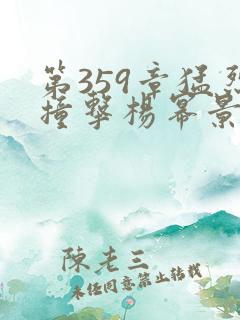 第359章猛烈
撞擊楊冪景
陳老三
未经同意禁止转载